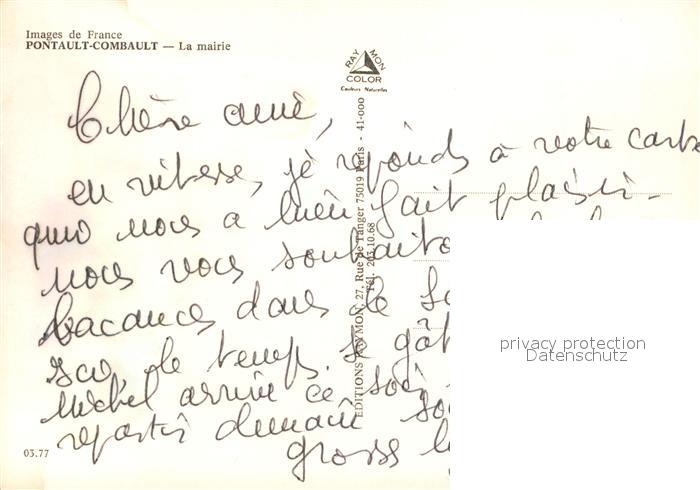 Images de France
PONTAULT-COMBAULT — La mairie
RAY MON
COLOR
Couleurs Naturelles
EDITIONS RAYMON, 27, Rue de Tanger 75019 Paris - 41-000
Tél. 203.10.68
Chère amie,
en vitesse, je réponds à votre carte
qui nous a bien fait plaisir.
nous vous souhaito
vacances dans le
ici, le temps se gât
Michel arrive ce soir
repartir demain
gross
03.77
privacy protection
Datenschutz